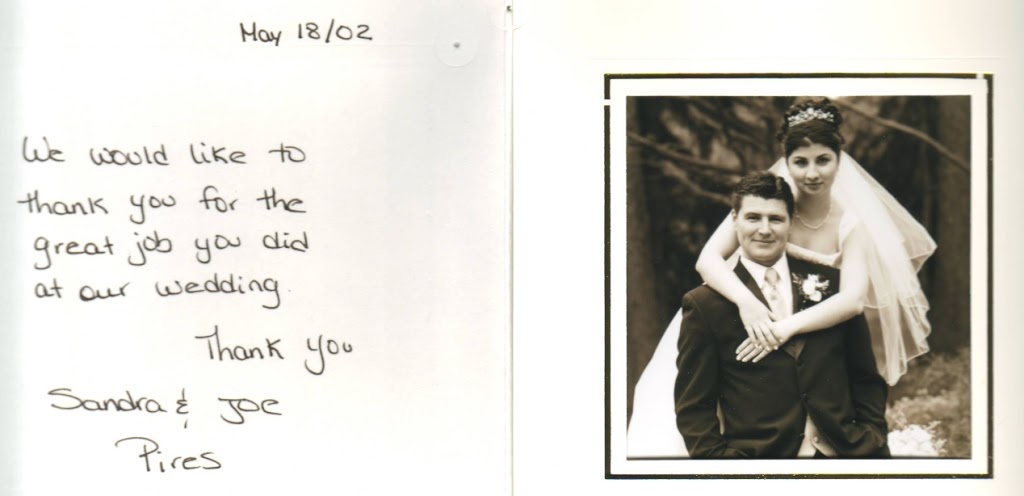 May 18/02
We would like to
thank you for the
great job you did
at our wedding.
Thank you
Sandra & Joe
Pires